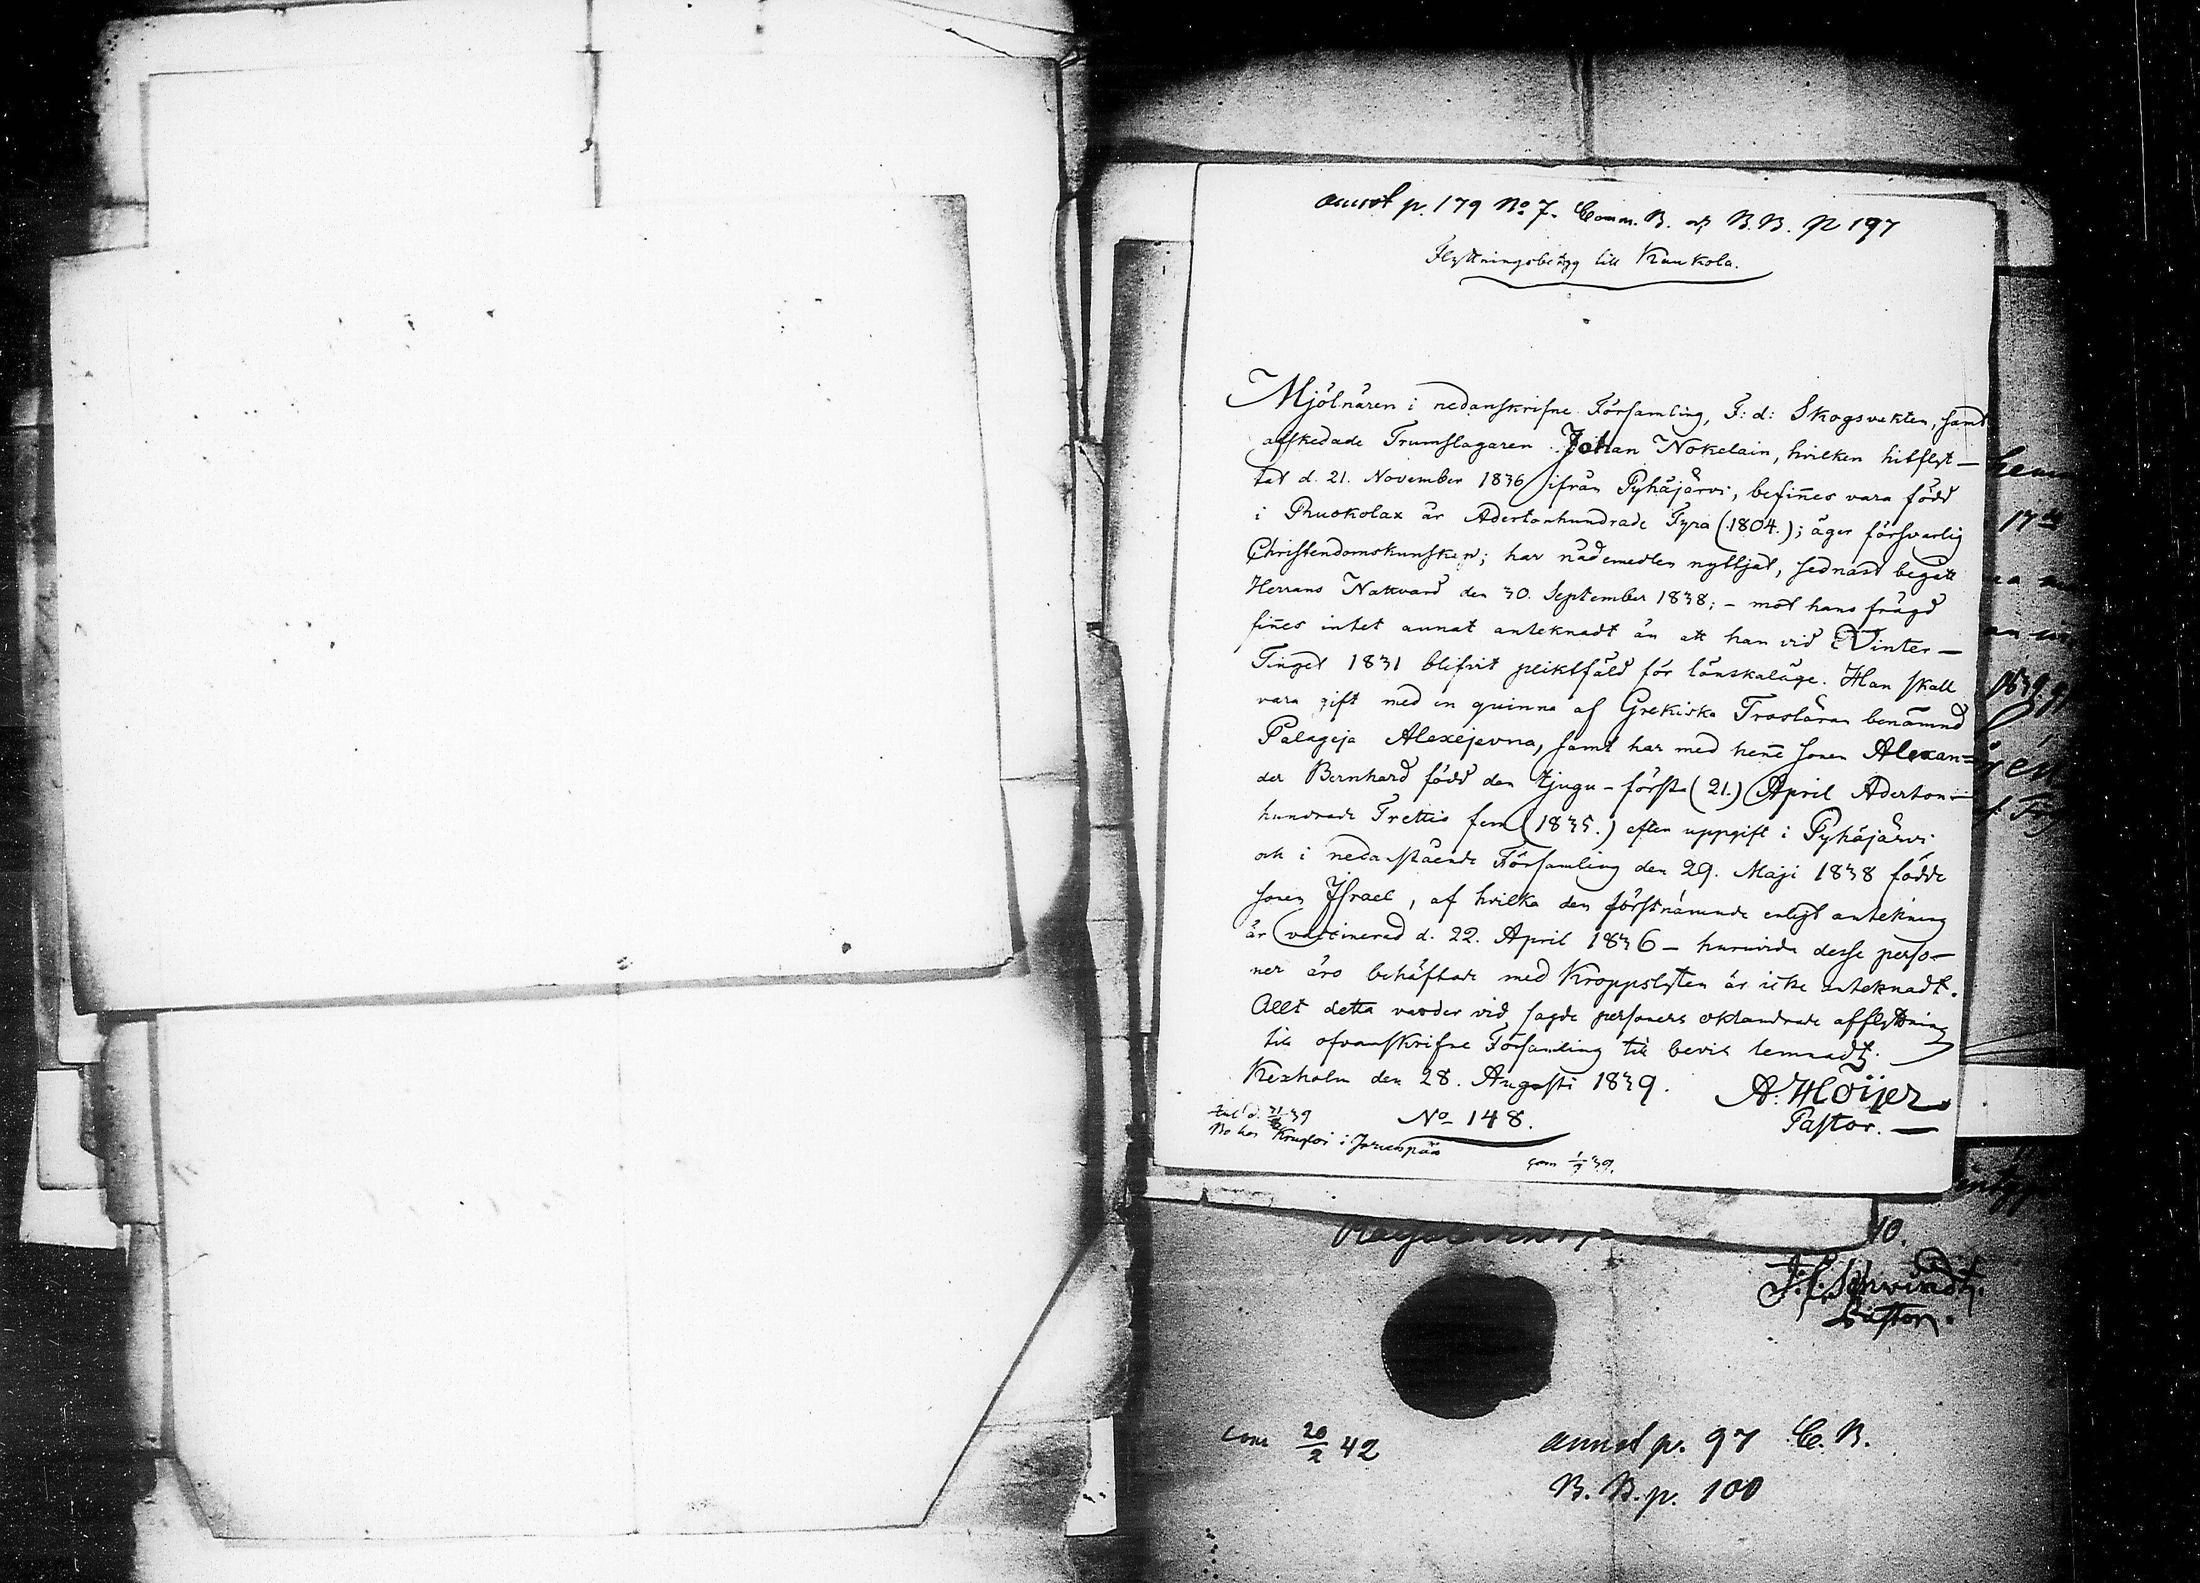 annot p. 179 No 7. Comm. B. och B.B. p 197
Flyttningsbetyg till Kaukola.
Mjölnären i nedanskrifne Församling, F: d: Skogsvakten, samt
afskedade Trumslagaren Johan Nokelain, hvilken hitflyt-
tat d. 21. November 1836 ifrån Pyhäjärvi, befines vara född
i Ruokolax år Adertonhundrade Fyra (1804.); äger försvarlig
Christendomskunskap; har nådemedlen nyttjat, sednast begått
Herrans Nattvard den 30. September 1838; - mot hans frägd
fines intet annat anteknadt än att han vid Vinter-
Tinget 1831 blifvit pliktfäld för lönskaläge. Han skall
vara gift med en quinna af Grekiska Trosläran benämnd
Palageja Alexejevna, samt har med hene sonen Alexan=
der Bernhard född den tjugu-första (21.) April Aderton-
hundrade Trettio fem (1835.) efter uppgift i Pyhäjärvi
och i nedanstående Församling den 29. Maji 1838 födde
sonen Israel, af hvilka den förstnämnde enligt antekning
är vaccinerad d. 22. April 1836 - huruvida desse perso-
ner äro behäftade med Kroppslyten är icke anteknadt.
Allt detta varder vid sagde personers oklandrade afflyttning
till ofvanskrifne Församling till bevis lemnadt.
Kexholm den 28. Augusti 1839. A. Höijer
No 148. Pastor.
Bo hos i
com 1/9 39.
10.
J. C. Schwindt.
Pastor.
com 20/2 42 annot p. 97 C. B.
B. B. p. 100